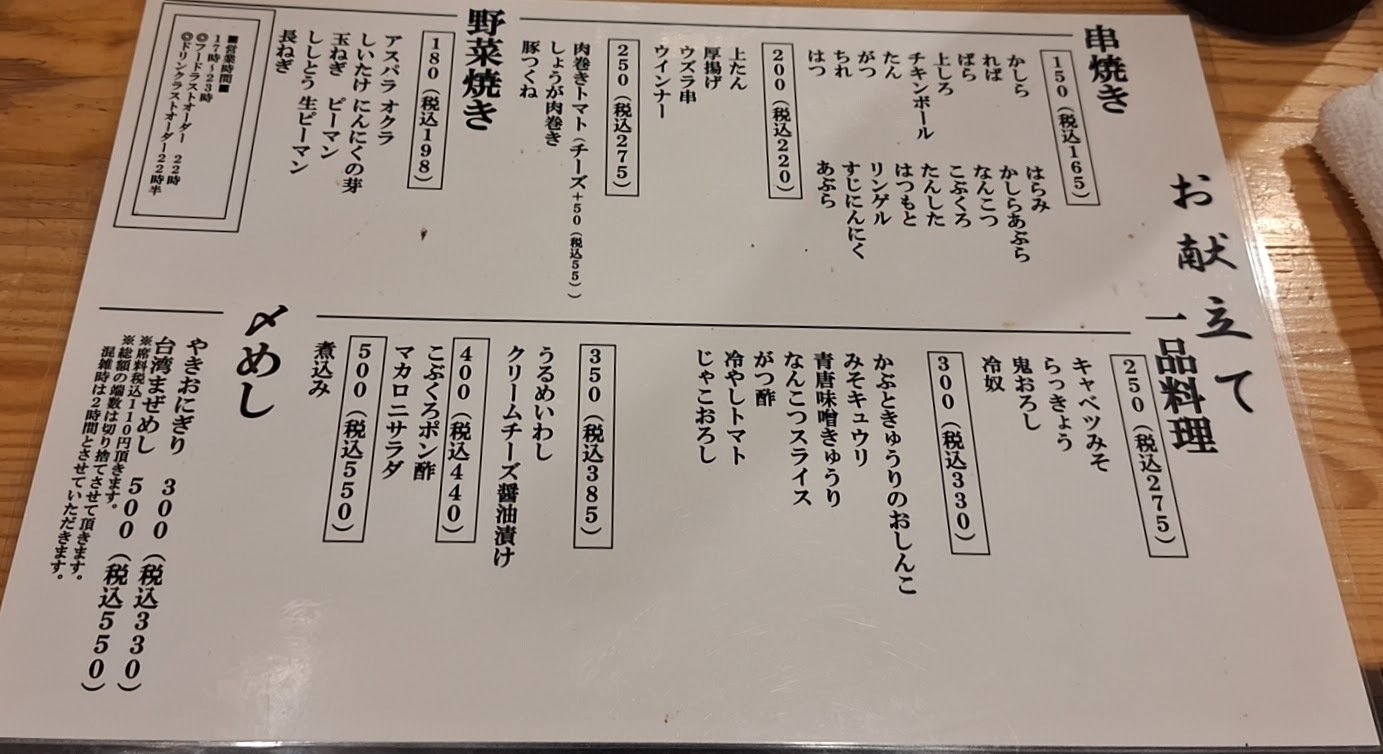 お献立て
串焼き
150（税込165）
かしら
れば
ばら
上しろ
チキンボール
たん
がつ
ちれ
はつ
はらみ
かしらあぶら
なんこつ
こぶくろ
たんした
はつもと
リンゲル
すじにんにく
あぶら
200（税込220）
上たん
厚揚げ
ウズラ串
ウインナー
250（税込275）
肉巻きトマト（チーズ+50（税込55））
しょうが肉巻き
豚つくね
野菜焼き
180（税込198）
アスパラ オクラ
しいたけ にんにくの芽
玉ねぎ ピーマン
ししとう 生ピーマン
長ねぎ
■営業時間■
17時～23時
◎フードラストオーダー 22時
◎ドリンクラストオーダー22時半
一品料理
250（税込275）
キャベツみそ
らっきょう
鬼おろし
冷奴
300（税込330）
かぶときゅうりのおしんこ
みそキュウリ
青唐味噌きゅうり
なんこつスライス
がつ酢
冷やしトマト
じゃこおろし
350（税込385）
うるめいわし
クリームチーズ醤油漬け
400（税込440）
こぶくろポン酢
マカロニサラダ
500（税込550）
煮込み
〆めし
やきおにぎり 300（税込330）
台湾まぜめし 500（税込550）
※席料税込110円頂きます。
※総額の端数は切り捨てさせて頂きます。
混雑時は2時間とさせていただきます。